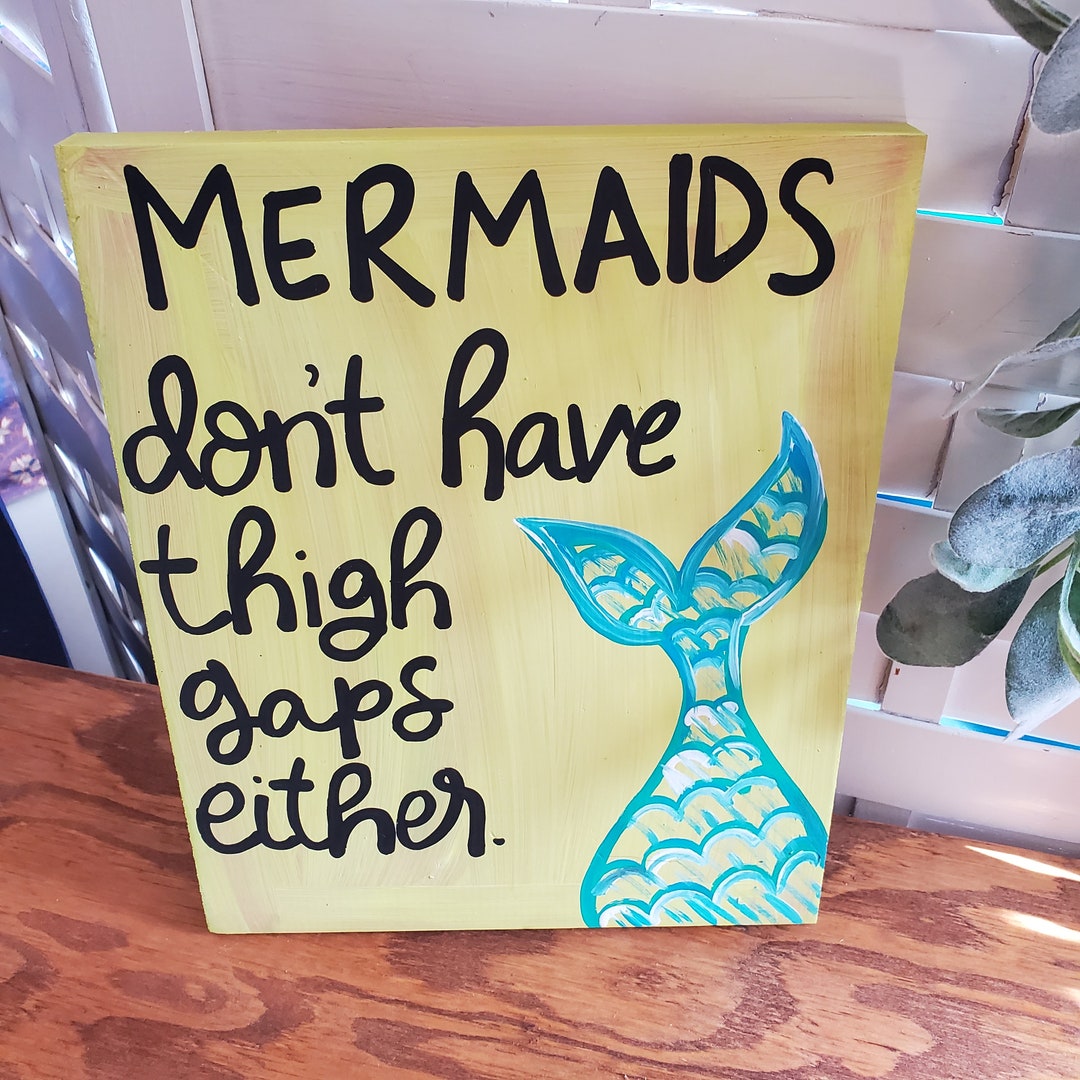 MERMAIDS
don't have
thigh
gaps
either.